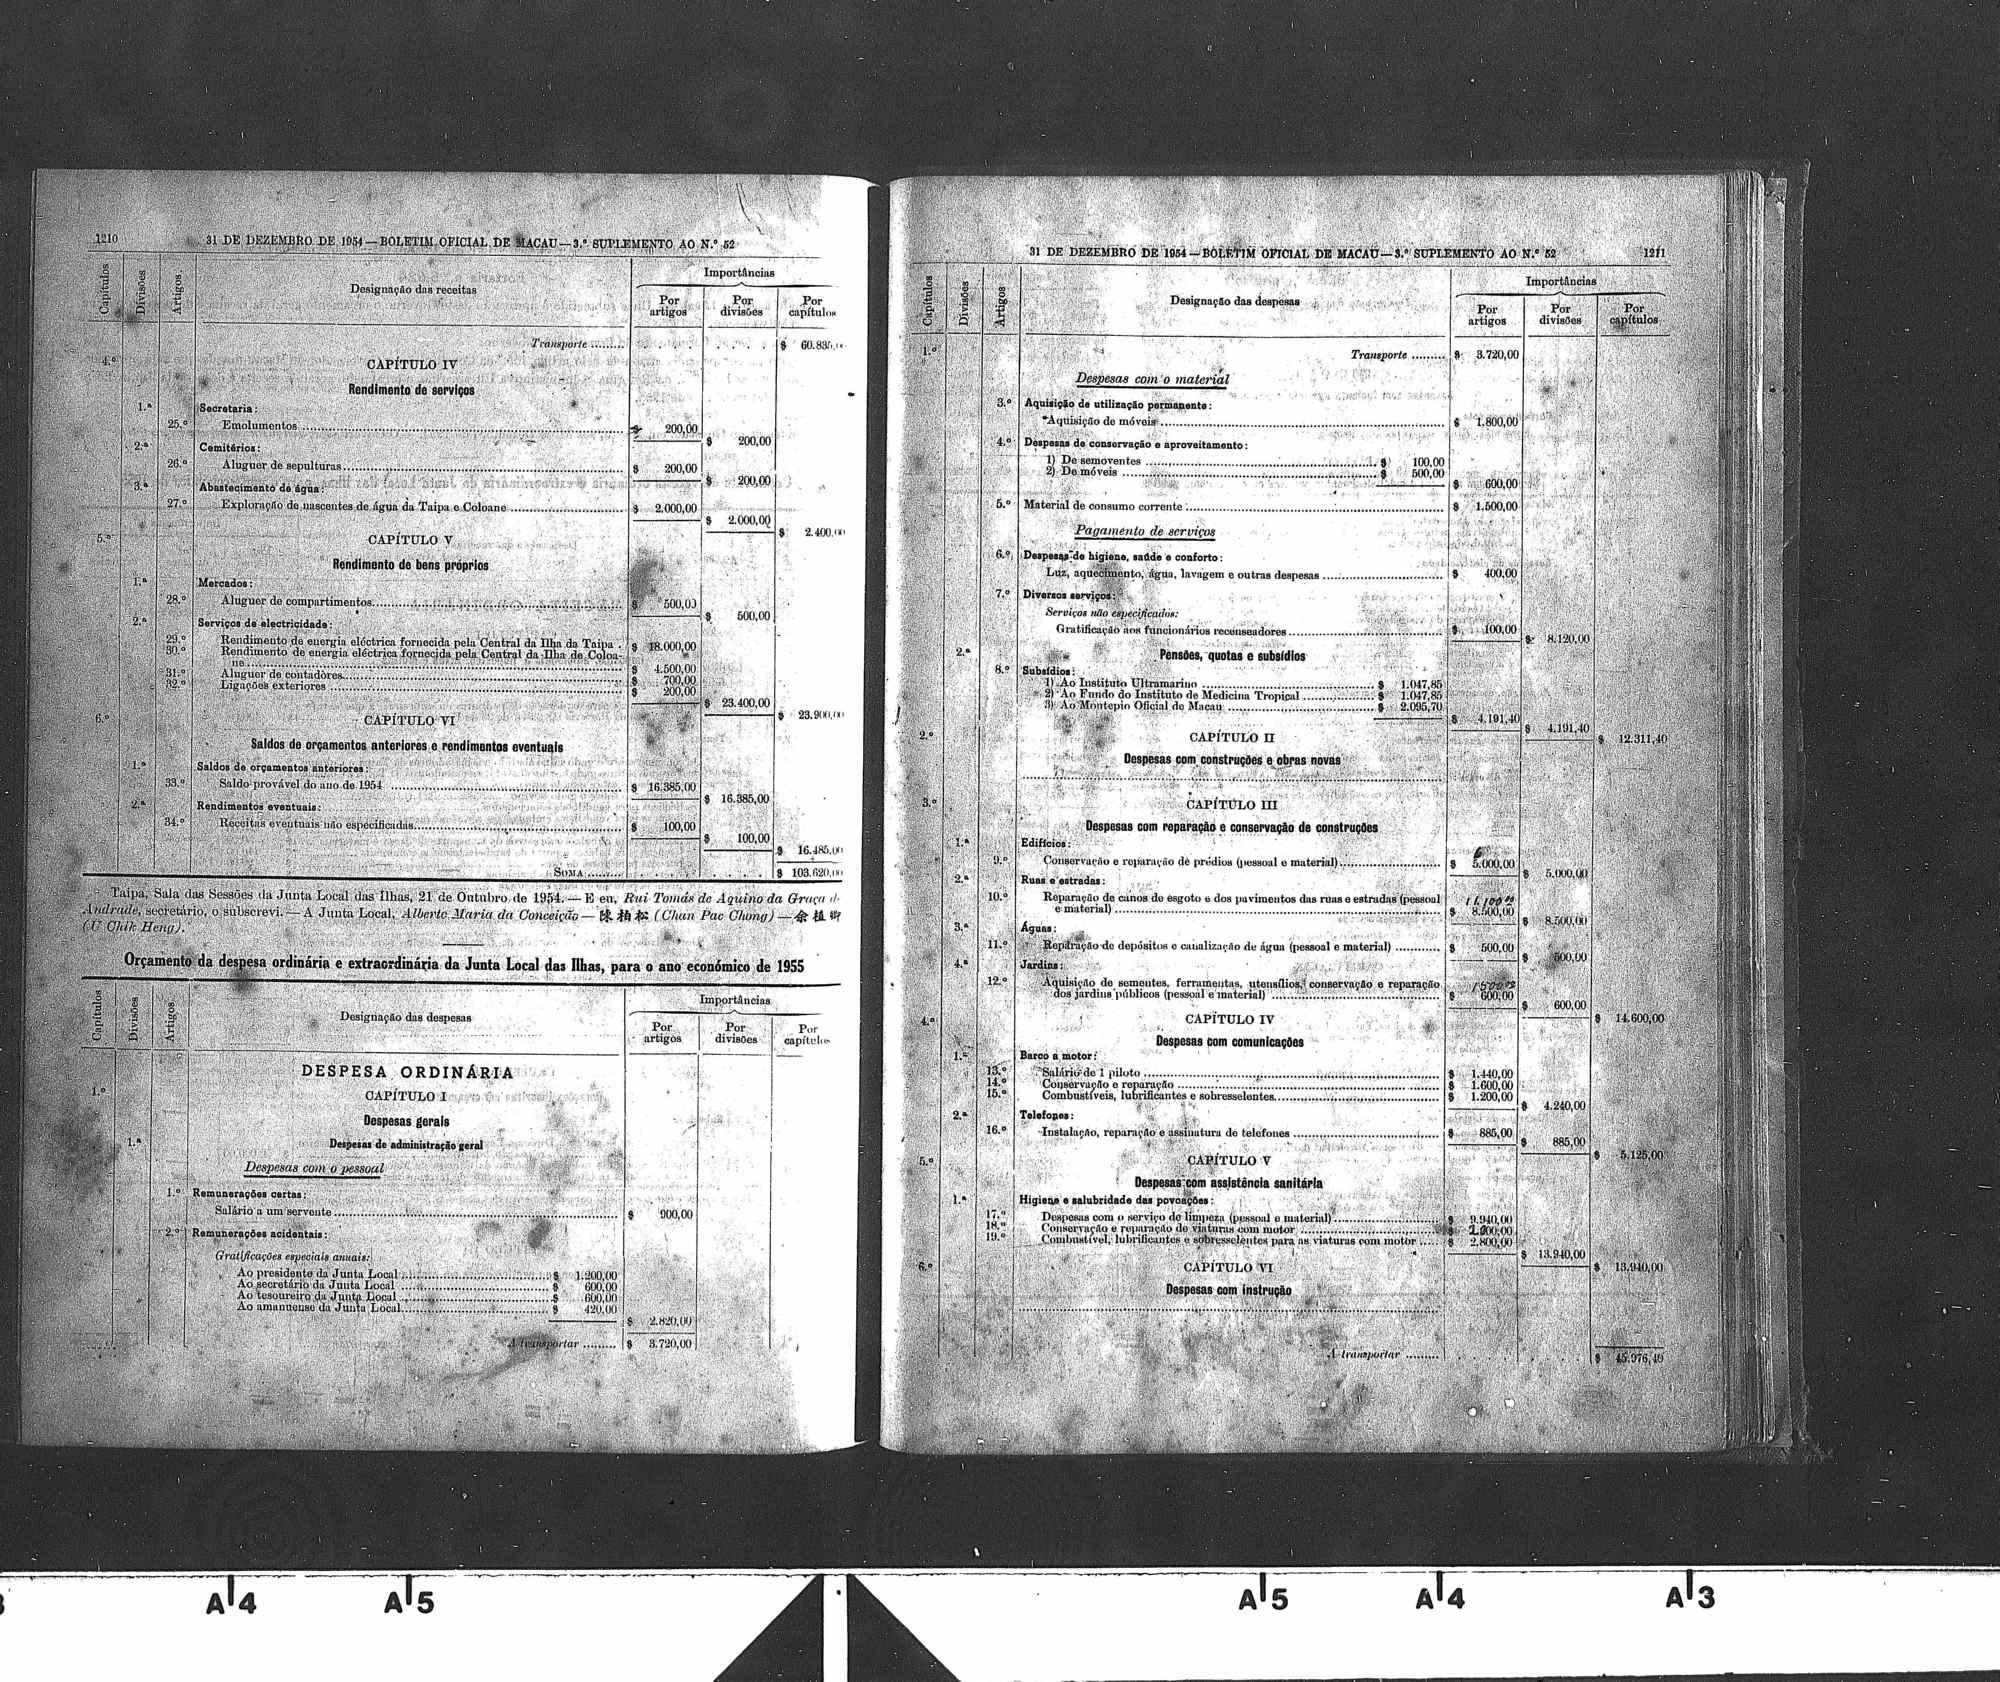 1210 31 DE DEZEMBRO DE 1954—BOLETIM OFICIAL DE MACAU—3.º SUPLEMENTO AO N.º 52
Capítulos Divisões Artigos Designação das receitas Importâncias
Por artigos Por divisões Por capítulos
Transporte ......... $ 60.835,00
4.º CAPÍTULO IV
Rendimento de serviços
1.ª Secretaria:
25.º Emolumentos 200,00
$ 200,00
2.ª Cemitérios:
26.º Aluguer de sepulturas $ 200,00
$ 200,00
3.ª Abastecimento de água:
27.º Exploração de nascentes de água da Taipa e Coloane $ 2.000,00
$ 2.000,00
$ 2.400,00
5.º CAPÍTULO V
Rendimento de bens próprios
1.ª Mercados:
28.º Aluguer de compartimentos $ 500,00
$ 500,00
2.ª Serviços de electricidade:
29.º Rendimento de energia eléctrica fornecida pela Central da Ilha da Taipa . $ 18.000,00
30.º Rendimento de energia eléctrica fornecida pela Central da Ilha de Coloa-
ne $ 4.500,00
31.º Aluguer de contadores $ 700,00
32.º Ligações exteriores $ 200,00
$ 23.400,00
$ 23.900,00
6.º CAPÍTULO VI
Saldos de orçamentos anteriores e rendimentos eventuais
1.ª Saldos de orçamentos anteriores:
33.º Saldo provável do ano de 1954 $ 16.385,00
$ 16.385,00
2.ª Rendimentos eventuais:
34.º Receitas eventuais não especificadas $ 100,00
$ 100,00
$ 16.485,00
SOMA ......... $ 103.620,00
Taipa, Sala das Sessões da Junta Local das Ilhas, 21 de Outubro de 1954.—E eu, Rui Tomás de Aquino da Graça d
Andrade, secretário, o subscrevi.—A Junta Local, Alberto Maria da Conceição—陳柏松 (Chan Pac Chong)—余植卿
(U Chik Heng).
Orçamento da despesa ordinária e extraordinária da Junta Local das Ilhas, para o ano económico de 1955
Capítulos Divisões Artigos Designação das despesas Importâncias
Por artigos Por divisões Por capítulos
DESPESA ORDINÁRIA
1.º CAPÍTULO I
Despesas gerais
1.ª Despesas de administração geral
Despesas com o pessoal
1.º Remunerações certas:
Salário a um servente $ 900,00
2.º Remunerações acidentais:
Gratificações especiais anuais:
Ao presidente da Junta Local $ 1.200,00
Ao secretário da Junta Local $ 600,00
Ao tesoureiro da Junta Local $ 600,00
Ao amanuense da Junta Local $ 420,00
$ 2.820,00
A transportar ......... $ 3.720,00
31 DE DEZEMBRO DE 1954—BOLETIM OFICIAL DE MACAU—3.º SUPLEMENTO AO N.º 52 1211
Capítulos Divisões Artigos Designação das despesas Importâncias
Por artigos Por divisões Por capítulos
1.º Transporte ......... $ 3.720,00
Despesas com o material
3.º Aquisição de utilização permanente:
Aquisição de móveis $ 1.800,00
4.º Despesas de conservação e aproveitamento:
1) De semoventes $ 100,00
2) De móveis $ 500,00
$ 600,00
5.º Material de consumo corrente $ 1.500,00
Pagamento de serviços
6.º Despesas de higiene, saúde e conforto:
Luz, aquecimento, água, lavagem e outras despesas $ 400,00
7.º Diversos serviços:
Serviços não especificados:
Gratificação aos funcionários recenseadores $ 100,00
$ 8.120,00
2.ª Pensões, quotas e subsídios
8.º Subsídios:
1) Ao Instituto Ultramarino $ 1.047,85
2) Ao Fundo do Instituto de Medicina Tropical $ 1.047,85
3) Ao Montepio Oficial de Macau $ 2.095,70
$ 4.191,40
$ 4.191,40
$ 12.311,40
2.º CAPÍTULO II
Despesas com construções e obras novas
3.º CAPÍTULO III
Despesas com reparação e conservação de construções
1.ª Edifícios:
9.º Conservação e reparação de prédios (pessoal e material) $ 5.000,00
$ 5.000,00
2.ª Ruas e estradas:
10.º Reparação de canos de esgoto e dos pavimentos das ruas e estradas (pessoal 11.100,00
e material) $ 8.500,00
$ 8.500,00
3.ª Águas:
11.º Reparação de depósitos e canalização de água (pessoal e material) $ 500,00
$ 500,00
4.ª Jardins:
12.º Aquisição de sementes, ferramentas, utensílios, conservação e reparação
dos jardins públicos (pessoal e material) $ 600,00
$ 600,00
$ 14.600,00
4.º CAPÍTULO IV
Despesas com comunicações
1.ª Barco a motor:
13.º Salário de 1 piloto $ 1.440,00
14.º Conservação e reparação $ 1.600,00
15.º Combustíveis, lubrificantes e sobresselentes $ 1.200,00
$ 4.240,00
2.ª Telefones:
16.º Instalação, reparação e assinatura de telefones $ 885,00
$ 885,00
$ 5.125,00
5.º CAPÍTULO V
Despesas com assistência sanitária
1.ª Higiene e salubridade das povoações:
17.º Despesas com o serviço de limpeza (pessoal e material) $ 9.940,00
18.º Conservação e reparação de viaturas com motor $
19.º Combustível, lubrificantes e sobresselentes para as viaturas com motor $ 2.800,00
$ 13.940,00
$ 13.940,00
6.º CAPÍTULO VI
Despesas com instrução
A transportar ......... $ 45.976,40
A4 A5 A5 A4 A3